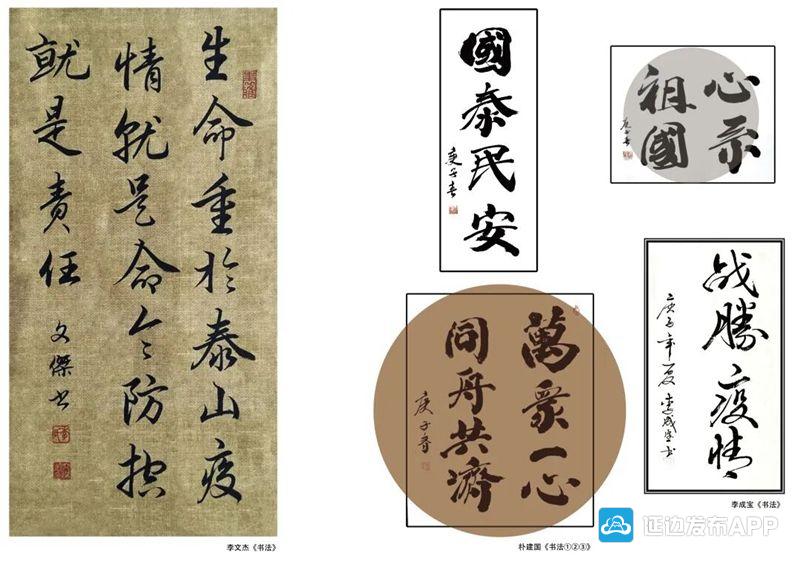 生命重於泰山疫
情就是命令防控
就是责任
文傑书
李文杰《书法》
國泰民安
庚子春
萬眾一心
同舟共濟
庚子春
朴建国《书法①②③》
心系
祖國
战勝疫情
庚子年夏李成宝书
李成宝《书法》
延边发布APP